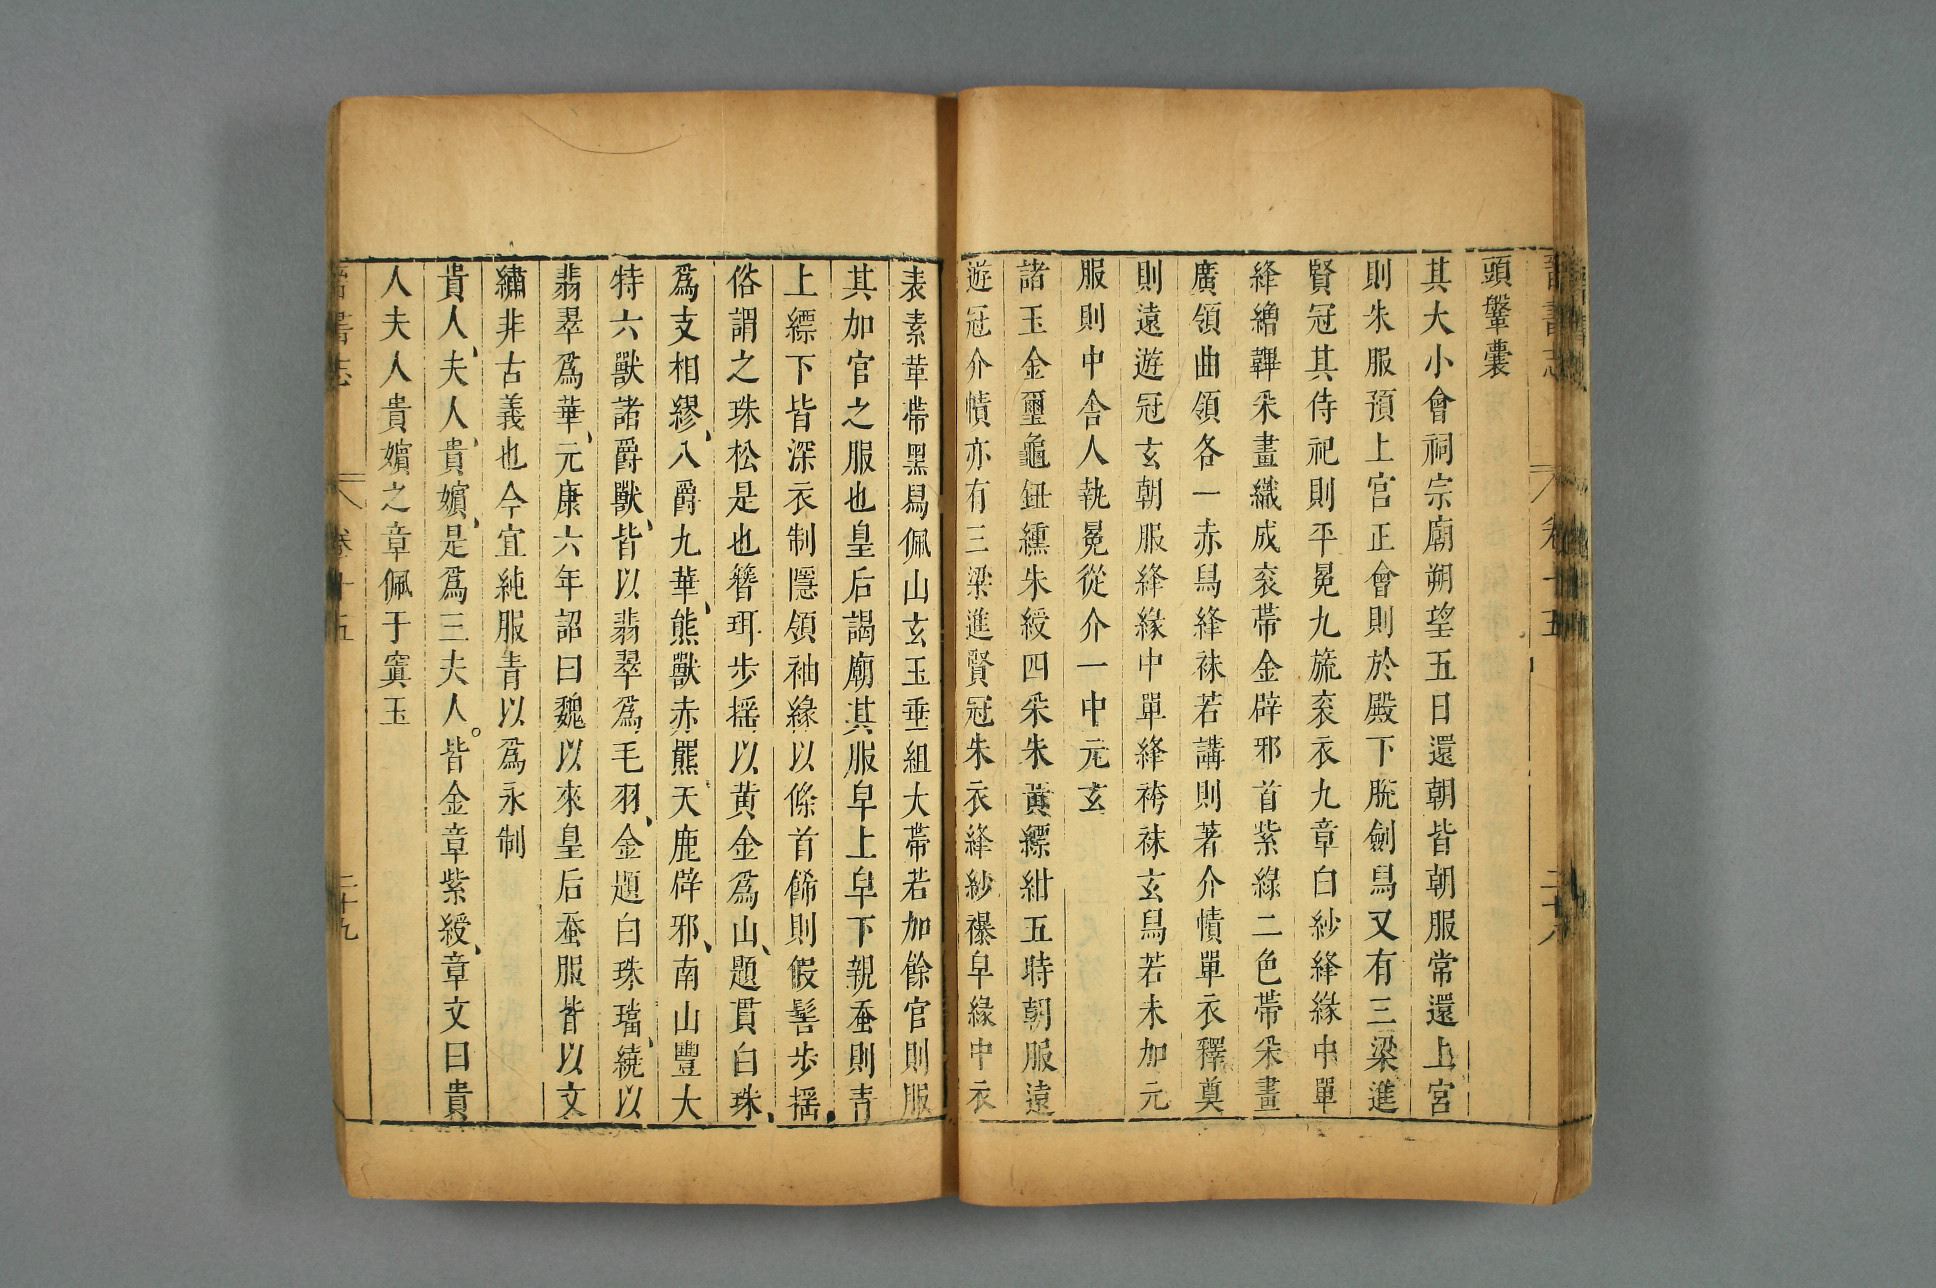 晉書志 卷十五 二十八
頭鞶囊
其大小會祠宗廟朔望五日還朝皆朝服常還上宮
則朱服預上宮正會則於殿下脫劍舄又有三梁進
賢冠其侍祀則平冕九旒衮衣九章白紗絳緣中單
絳繒韠采畫織成衮帶金辟邪首紫綠二色帶采畫
廣領曲領各一赤舄絳袜若講則著介幘單衣釋奠
則遠遊冠玄朝服絳緣中單絳袴袜玄舄若未加元
服則中舎人執冕從介一中元玄
諸王金璽龜鈕纁朱綬四采朱黃縹紺五時朝服遠
遊冠介幘亦有三梁進賢冠朱衣絳紗襮皁緣中衣
表素革帶黑舄佩山玄玉垂組大帶若加餘官則服
其加官之服也皇后謁廟其服皁上皁下親蚕則青
上縹下皆深衣制隱領袖緣以絛首飾則假髻步摇、
俗謂之珠松是也簪珥步摇以黄金爲山、題貫白珠、
爲支相繆、八爵九華、熊獸赤羆天鹿辟邪、南山豐大
特六獸諸爵獸、皆以翡翠爲毛羽、金題白珠璫、繞以
翡翠爲華、元康六年詔曰魏以來皇后蚕服皆以文
繡非古義也今宜純服青以爲永制
貴人、夫人、貴嬪、是爲三夫人。皆金章紫綬、章文曰貴
人夫人貴嬪之章佩于寘玉
晉書志 卷十五 二十九